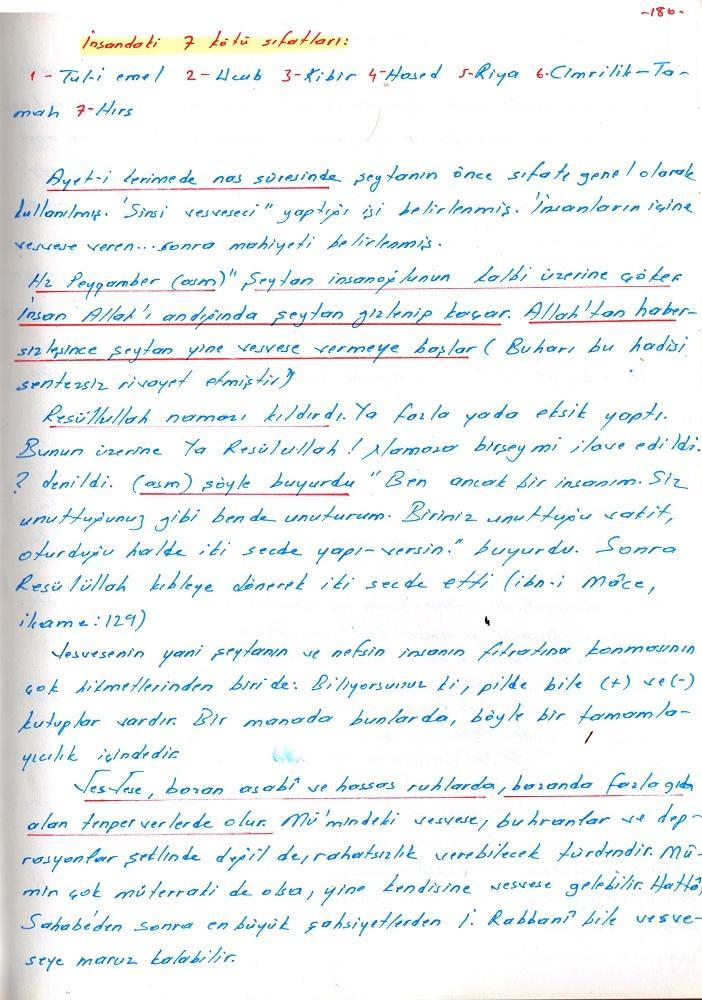 -180-
İnsandaki 7 kötü sıfatları:
1- Tul-i emel 2- Ucub 3-Kibir 4-Hased 5-Riya 6-Cimrilik-Ta-
mah 7-Hırs
Ayet-i kerimede nas sûresinde şeytanın önce sıfatı genel olarak
kullanılmış. "Sinsi vesveseci" yaptığı işi belirlenmiş. İnsanların içine
vesvese veren... sonra mahiyeti belirlenmiş.
Hz Peygamber (asm) "Şeytan insanoğlunun kalbi üzerine çöker
İnsan Allah'ı andığında şeytan gizlenip kaçar. Allah'tan haber-
sizleşince şeytan yine vesvese vermeye başlar (Buharı bu hadisi
sentezsiz rivayet etmiştir)"
Resûlullah namazı kıldırdı. Ya fazla yada eksik yaptı.
Bunun üzerine Ya Resûlullah! Namaza birşey mi ilave edildi.
? denildi. (asm) şöyle buyurdu "Ben ancak bir insanım. Siz
unuttuğunuz gibi bende unuturum. Biriniz unuttuğu vakit,
oturduğu halde iki secde yapı-versin." buyurdu. Sonra
Resûlüllah kıbleye dönerek iki secde etti (ibn-i Mâce,
ikame: 129)
Vesvesenin yani şeytanın ve nefsin insanın fıtratına konmasının
çok hikmetlerinden biri de: Biliyorsunuz ki, pilde bile (+) ve (-)
kutuplar vardır. Bir manada bunlarda, böyle bir tamamla-
yıcılık içindedir.
Vesvese, bazan asabî ve hassas ruhlarda, bazanda fazla gıda
alan tenperverlerde olur. Mü'mindeki vesvese, buhranlar ve dep-
rasyonlar şeklinde değil de, rahatsızlık verebilecek türdendir. Mü-
min çok müterraki de olsa, yine kendisine vesvese gelebilir. Hattâ,
Sahabe'den sonra en büyük şahsiyetlerden İ. Rabbanî bile vesve-
seye maruz kalabilir.